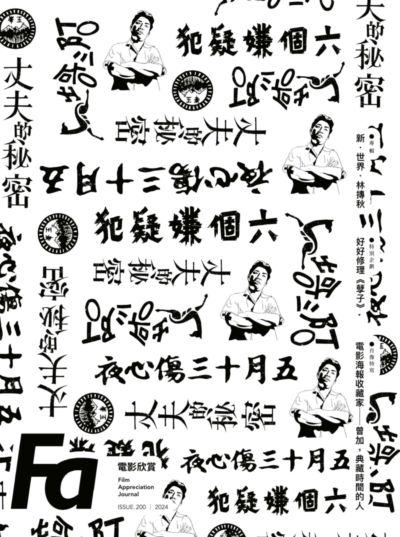 六個嫌疑犯
丈夫的秘密
丈夫的秘密
丈夫的秘密
五月十三傷心夜
六個嫌疑犯
丈夫的秘密
丈夫的秘密
五月十三傷心夜
五月十三傷心夜
丈夫的秘密
五月十三傷心夜
六個嫌疑犯
●專輯
新．世界．林摶秋
●特別企劃
好好修理《孽子》
●肖像特寫
電影海報收藏家——曾加，典藏時間的人
Fa
電影欣賞
Film
Appreciation
Journal
ISSUE.200 | 2024